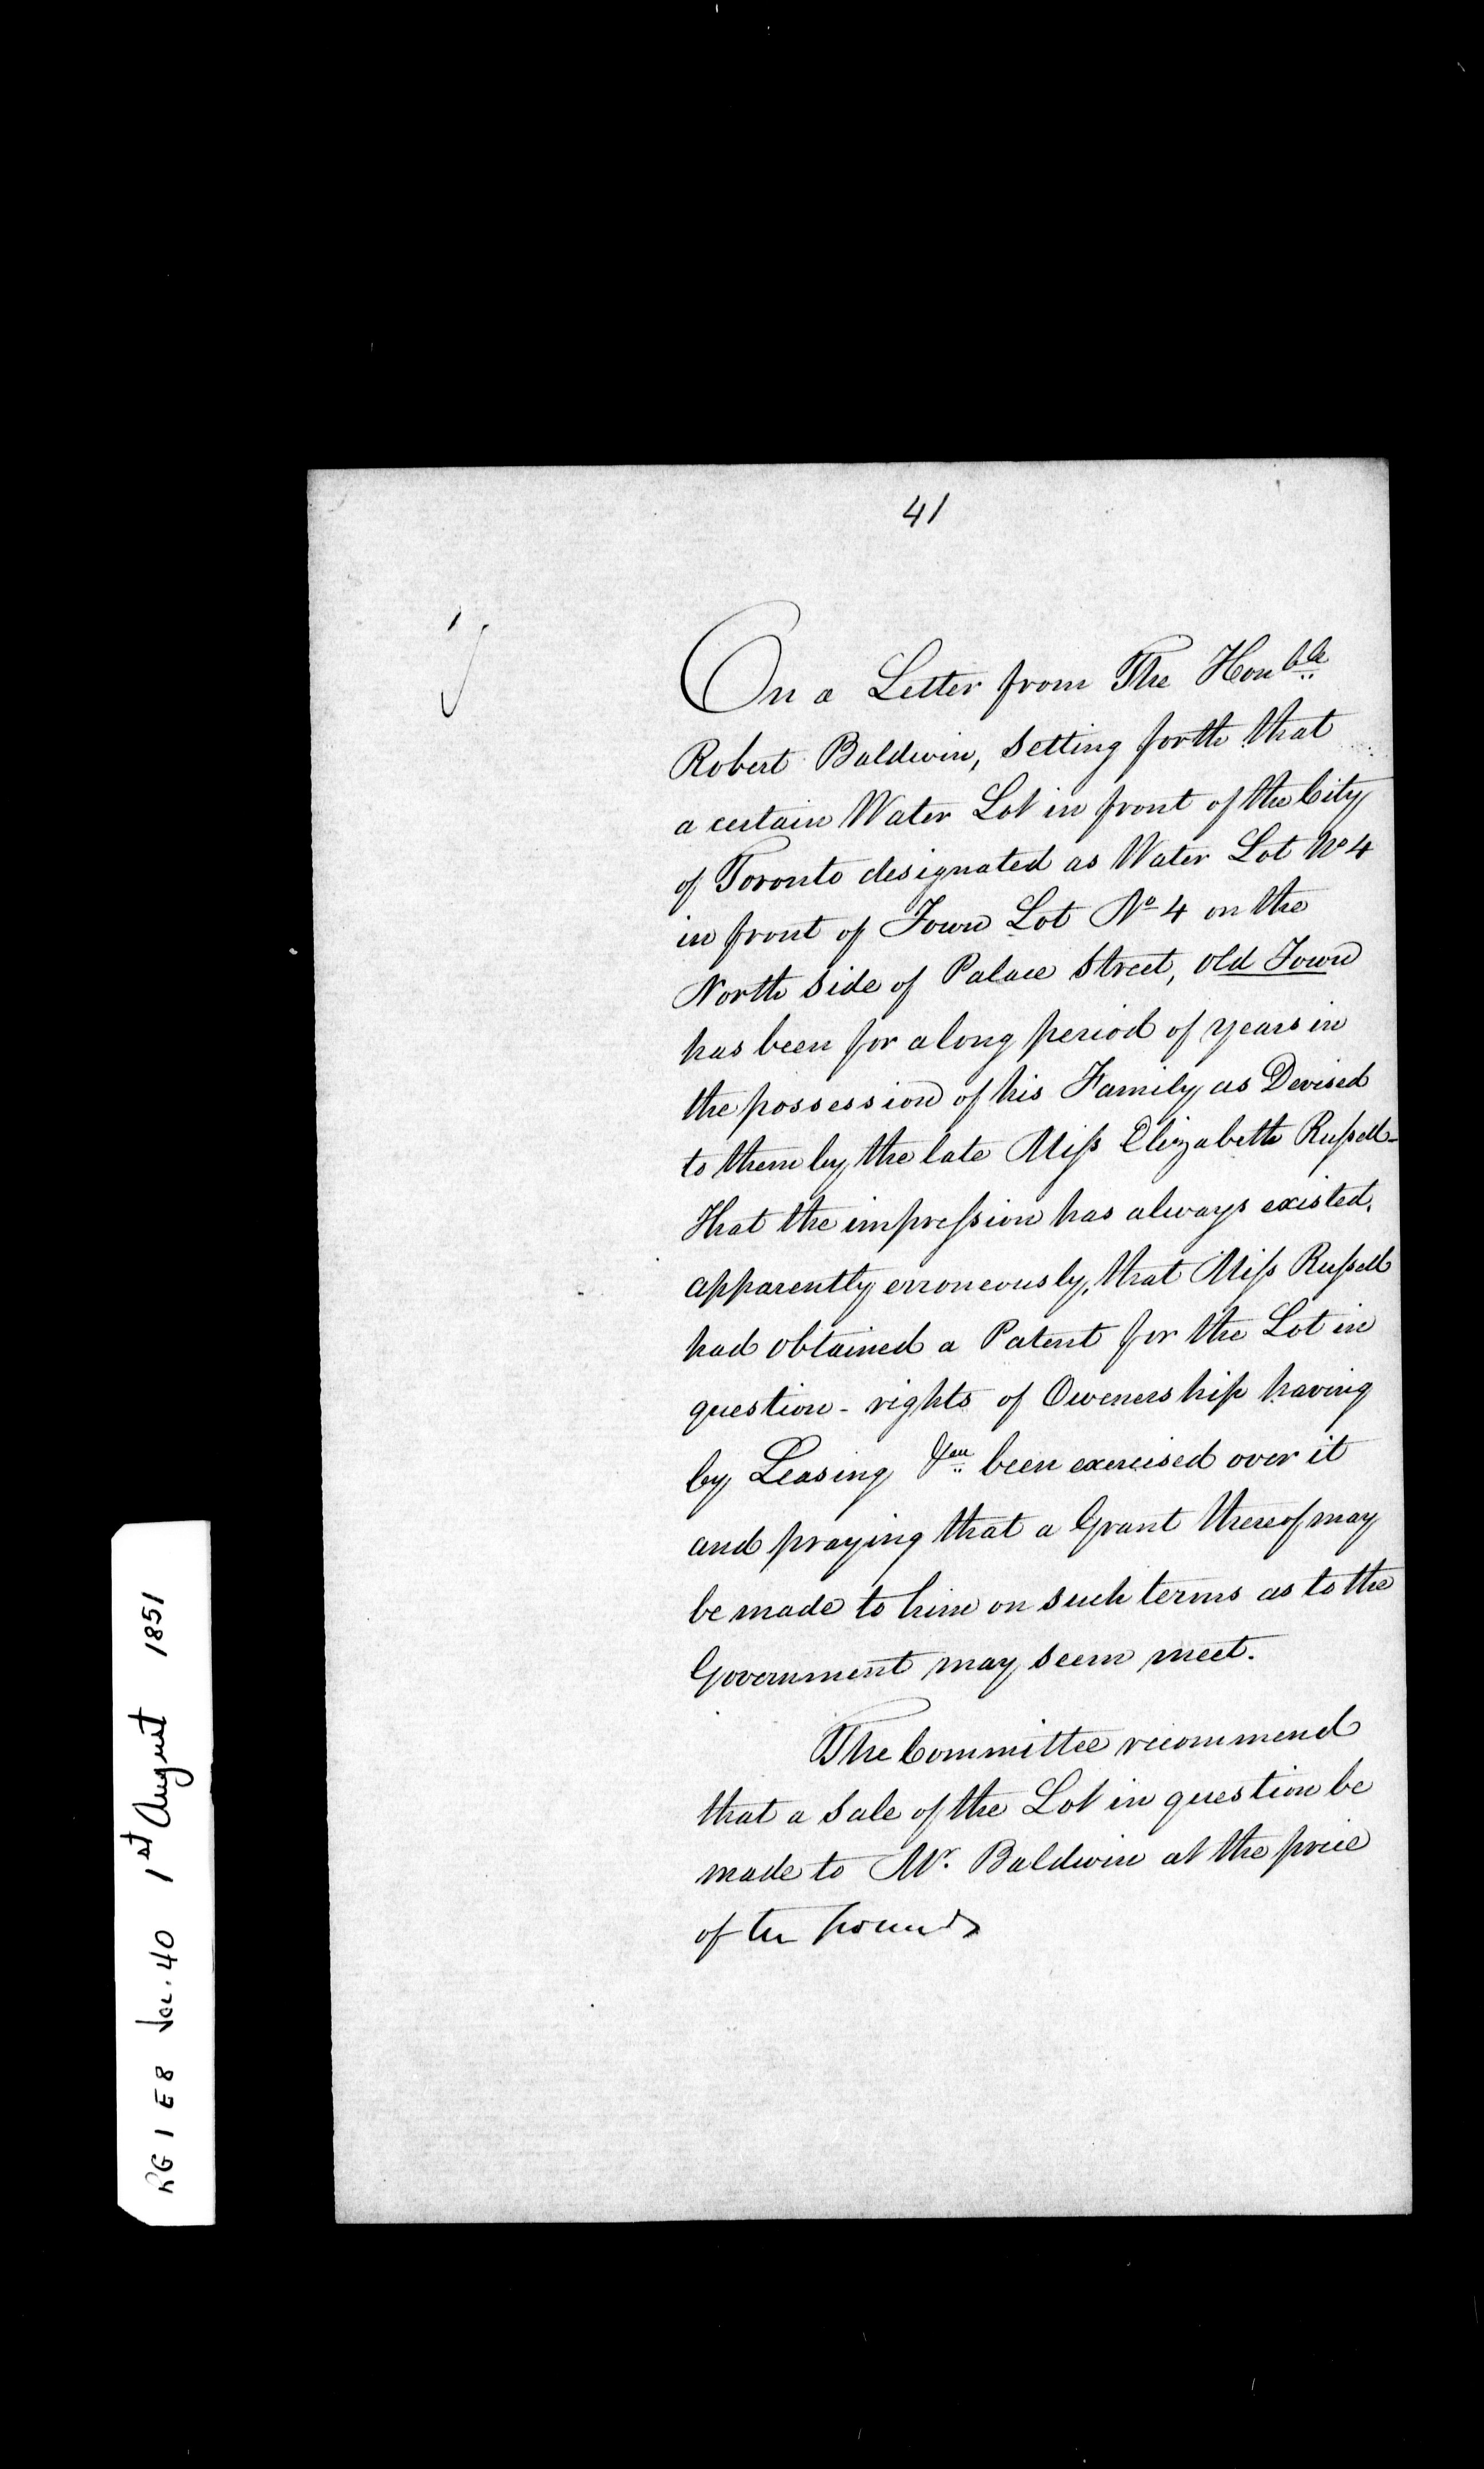 41
On a Letter from The Honble
Robert Baldwin, setting forth that
a certain Water Lot in front of the City
of Toronto designated as Water Lot No 4
in front of Town Lot No 4 on the
North side of Palace Street, Old Town
has been for a long period of years in
the possession of his Family as Devised
to them by the late Miss Elizabeth Russell-
That the impression has always existed,
apparently erroneously, that Miss Russell
had obtained a Patent for the Lot in
question - rights of Owenership having
by Leasing &ca been exercised over it
and praying that a Grant thereof may
be made to him on such terms as to the
Government may seem meet.
The Committee recommend
that a sale of the Lot in question be
made to Mr. Baldwin at the price
of ten pounds
RG 1 E8 Vol. 40 1st August 1851